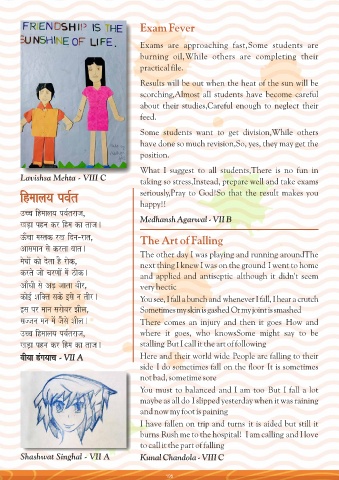 FRIENDSHIP IS THE
SUNSHINE OF LIFE.
Lavishsa Mehta - VIII C
हिमालय पर्वत
उच्च हिमालय पर्वतराज,
खड़ा पहन कर हिम का ताज।
ऊँचा मस्तक रख दिन-रात,
आसमान से करता बात।
मेघों को देता है रोक,
करते जो चरणों में ठोक।
आँधी से अड़ जाता वीर,
कोई शक्ति सके इसे न तीर।
इस पर मान सरोवर झील,
सज्जन मन में जैसे शील।
उच्च हिमालय पर्वतराज,
खड़ा पहन कर हिम का ताज।
वीया डंगयाच - VII A
Shashwat Singhal - VII A
Exam Fever
Exams are approaching fast,Some students are
burning oil,While others are completing their
practical file.
Results will be out when the heat of the sun will be
scorching,Almost all students have become careful
about their studies,Careful enough to neglect their
feed.
Some students want to get division,While others
have done so much revision,So, yes, they may get the
position.
What I suggest to all students,There is no fun in
taking so stress,Instead, prepare well and take exams
seriously,Pray to God!So that the result makes you
happy!!
Medhansh Agarwal - VII B
The Art of Falling
The other day I was playing and running aroundThe
next thing I knew I was on the ground I went to home
and applied and antiseptic although it didn't seem
very hectic
You see, I fall a bunch and whenever I fall, I hear a crutch
Sometimes my skin is gashed Or my joint is smashed
There comes an injury and then it goes How and
where it goes, who knowsSome might say to be
stalling But I call it the art of following
Here and their world wide People are falling to their
side I do sometimes fall on the floor It is sometimes
not bad, sometime sore
You must to balanced and I am too But I fall a lot
maybe as all do I slipped yesterday when it was raining
and now my foot is paining
I have fallen on trip and turns it is aided but still it
burns Rush me to the hospital! I am calling and I love
to call it the part of falling
Kunal Chandola - VIII C